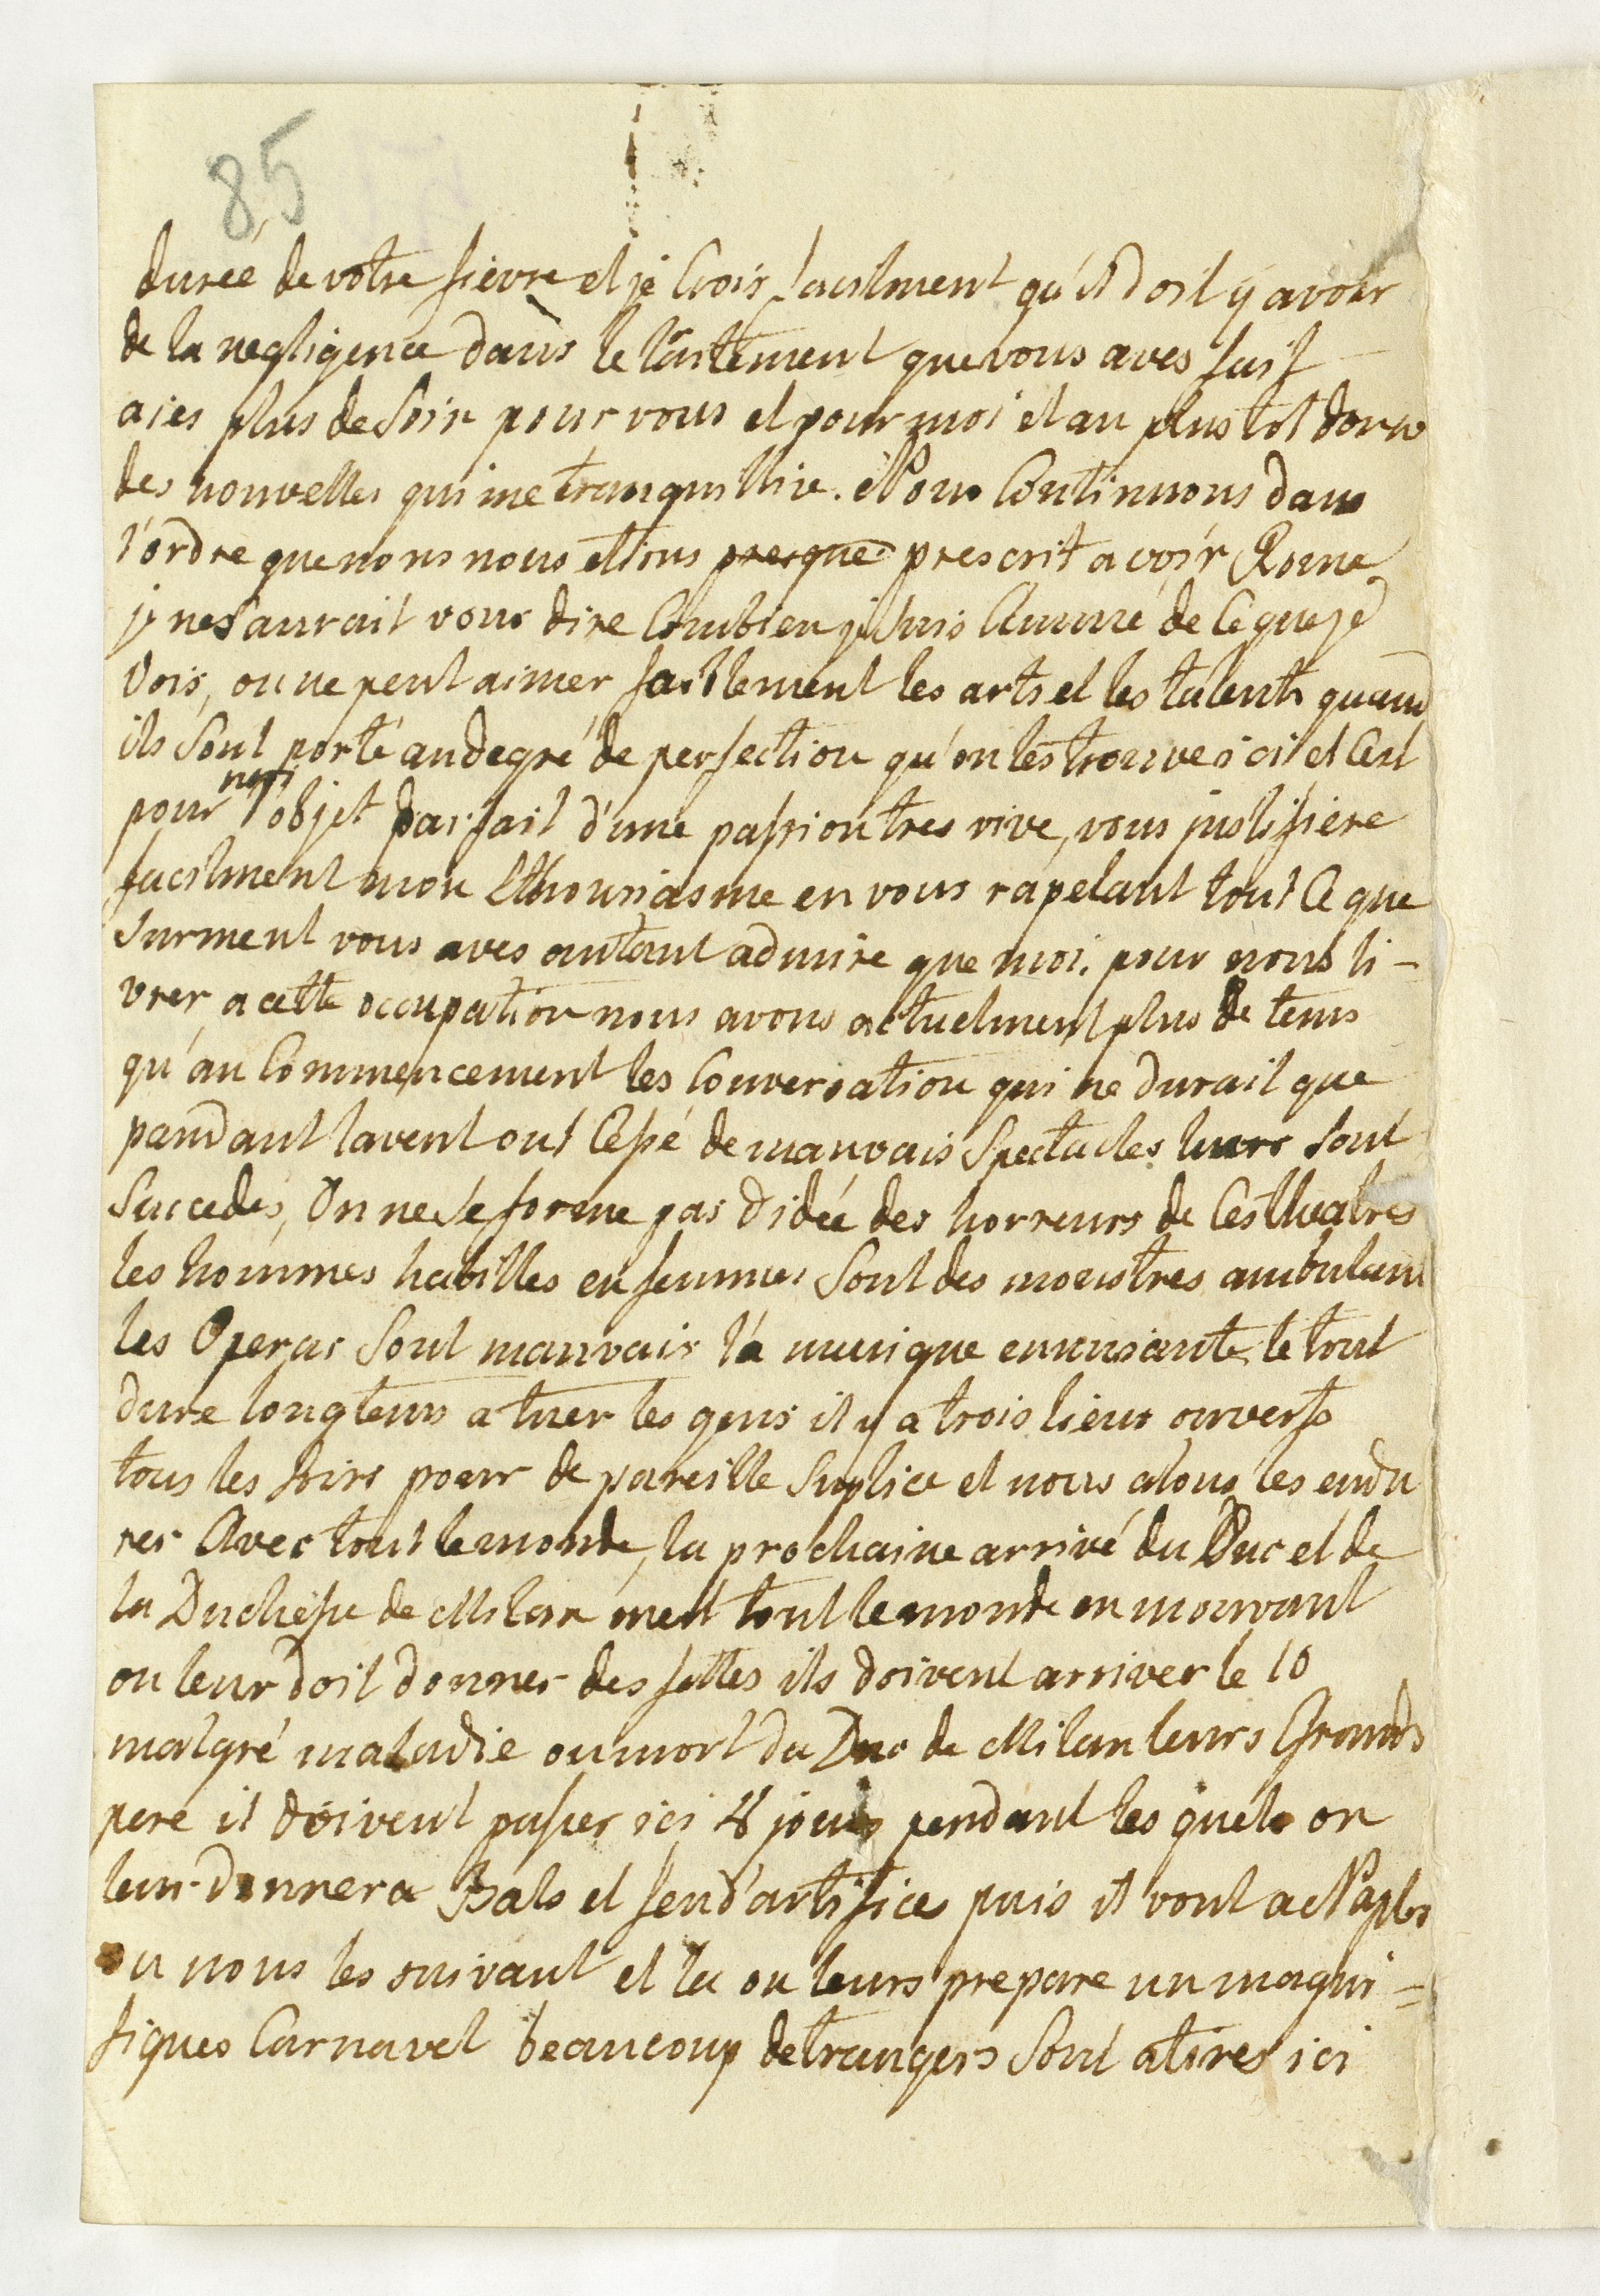 85
dureé de votre fièvre et je Crois facilment qu'il doit y avoir
de la negligence dans le traitement que vous aves fait
aies plus de Soin pour vous et pour moi et au plustot donné
des nouvelles qui me tranquillise. Nous Continuons dans
l'ordre que nous nous etions presque prescrit a voir Rome
je ne Saurait vous dire Combien je suis Charmé de Ce que je
Vois, on ne peut aimer faiblement les arts et les talents quand
ils Sont porté au degré de perfection qu'on les trouve ici et Cest
pour moi l'objet parfait d'une passion tres vive, vous justifière
facilment mon Ethousiasme en vous rapelant tout Ce que
Surment vous aves autant admire que moi. pour nous li-
vrer a cette occupation nous avons actuelment plus de tems
qu'au Commencement les Conversation qui ne durait que
pandant lavent out Cessé de mauvais Spectacles leurs sont
Succedés, On ne Se forme pas didée des horreurs de Ces theatres
les hommes habilles en femmes Sont des monstres ambulant
les Operas Sont mauvais la musique ennuiante, le tout
dure longtems a tuer les gens il y a trois lieux ouverts
tous les soirs pour de pareille Suplice et nous alons les endu
rer Avec tout le monde, la prochaine arrivé du Duc et de
la Duchesse de Milan met tout le monde en mouvant
on leur doit donner des fettes ils doivent arriver le 10
malgré maladie ou mort du Duc de Milan leurs Grands
pere il doivent passer ici 8 jours pendant les quels on
leur donnera Bals et feu d'artifices puis il vont a Naples
ou nous les suivant et la on leurs prepare un magni=
fiques Carnavel beaucoup detrangers Sont atires ici